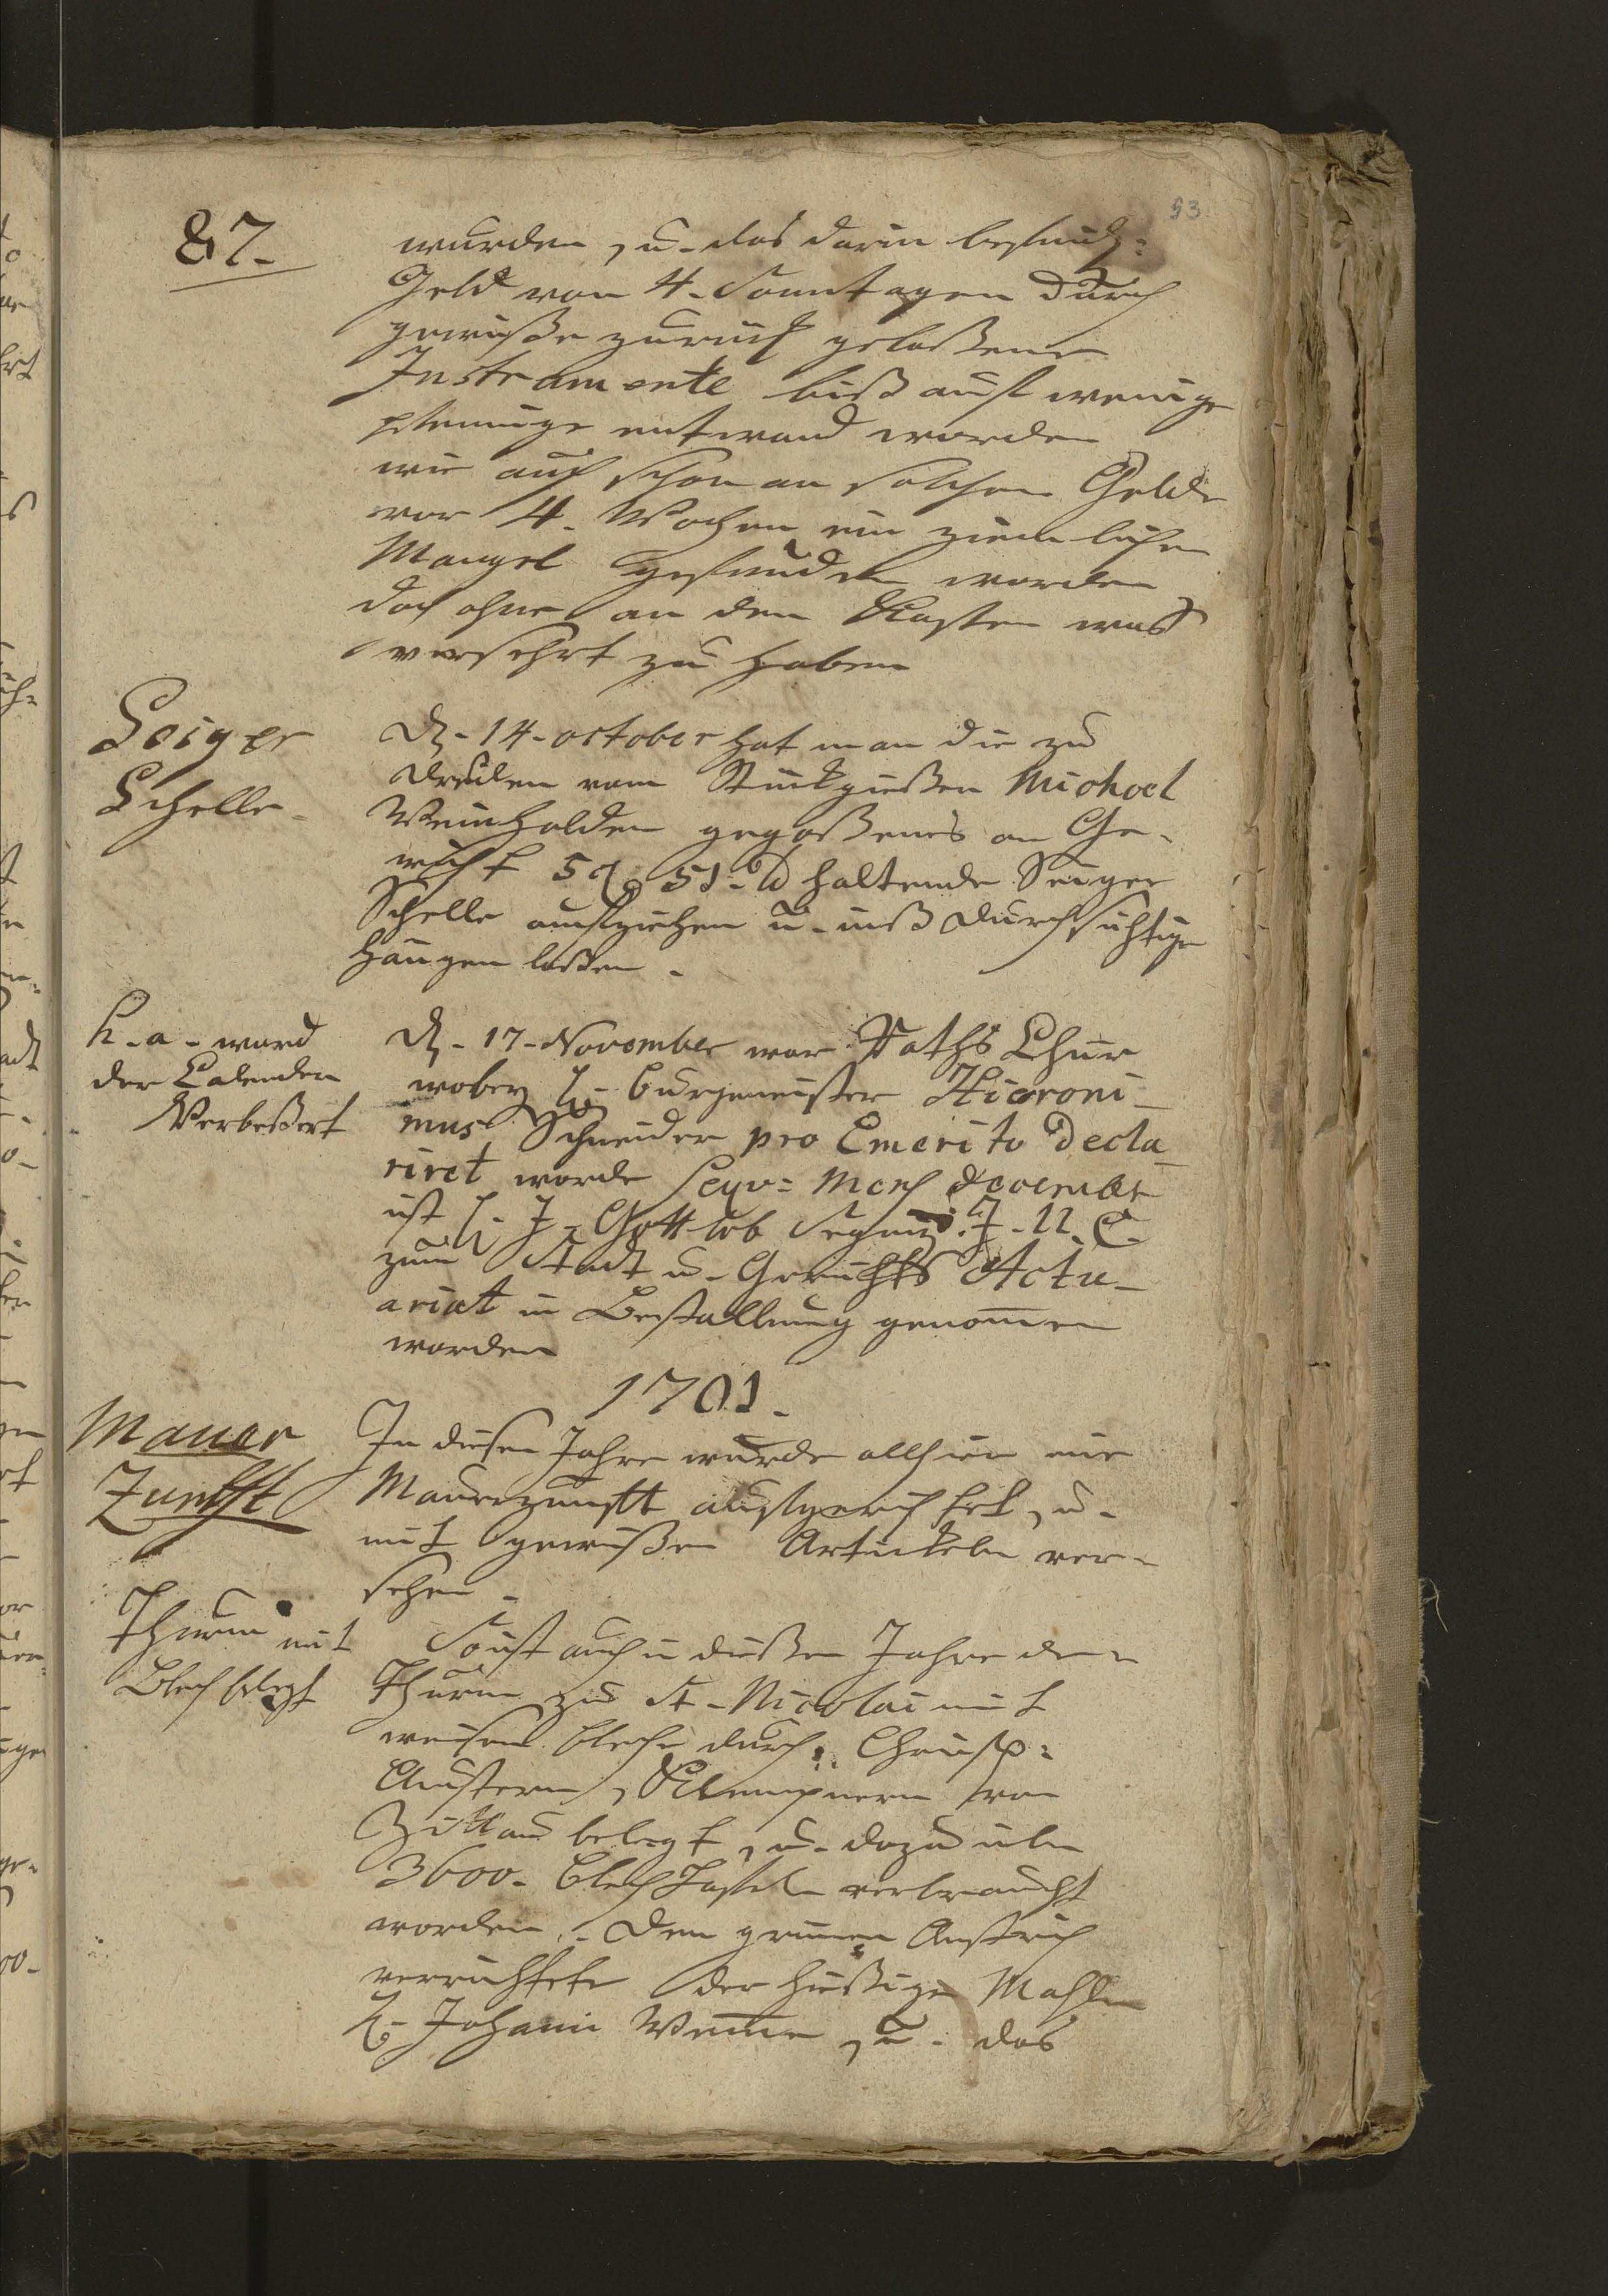 53
87.
wurden, u. das darin befindl:
Geld von 4. Sonntagen durch
gewiße zurück gelaßene
Instrumente biß auf wenige
pfennige entwand worden
wie auch schon an solchen Gelde
vor 4. Wochen ein ziemlicher
Mangel gefunden worden
doch ohne an dem Kasten was
versehrt zu haben
Seiger
Schelle.
D. 14. october hat man die zu
Dresden vom Stückgießer Michael
Weinholden gegoßene an Ge-
wicht 5 51. haltende Seiger
Schelle aufziehen u. inß durchsichtige
hangen laßen.
h. a. ward
der Calender
Verbeßert
D. 17. November war Raths Chur
wobey H. burgemeister Hieroni-
mus Schneider pro Emerito Decla-
riret worde Sequ: Mens December
ist H. J. Gottlob J. U. C.
zum Stadt u. Gerichts Actu-
ariat in Bestallung genomen
worden
1701.
Mauer
Zunfft
In diesen Jahre wurde allhier eine
Maurzunfft aufgerichtet, u.
mit gewißen Artickeln ver-
sehen.
Thurm mit
Blech belegt
So ist auch in dießen Jahre der
Thurm zu St. Nicolai mit
weisen bleche durch Christ:
Klempnern von
Zittau belegt, u. dazu über
3600. blech Tafeln verbraucht
worden. Den grünen Anstrich
verrichtete der hießige Mahler
H. Johann u. das